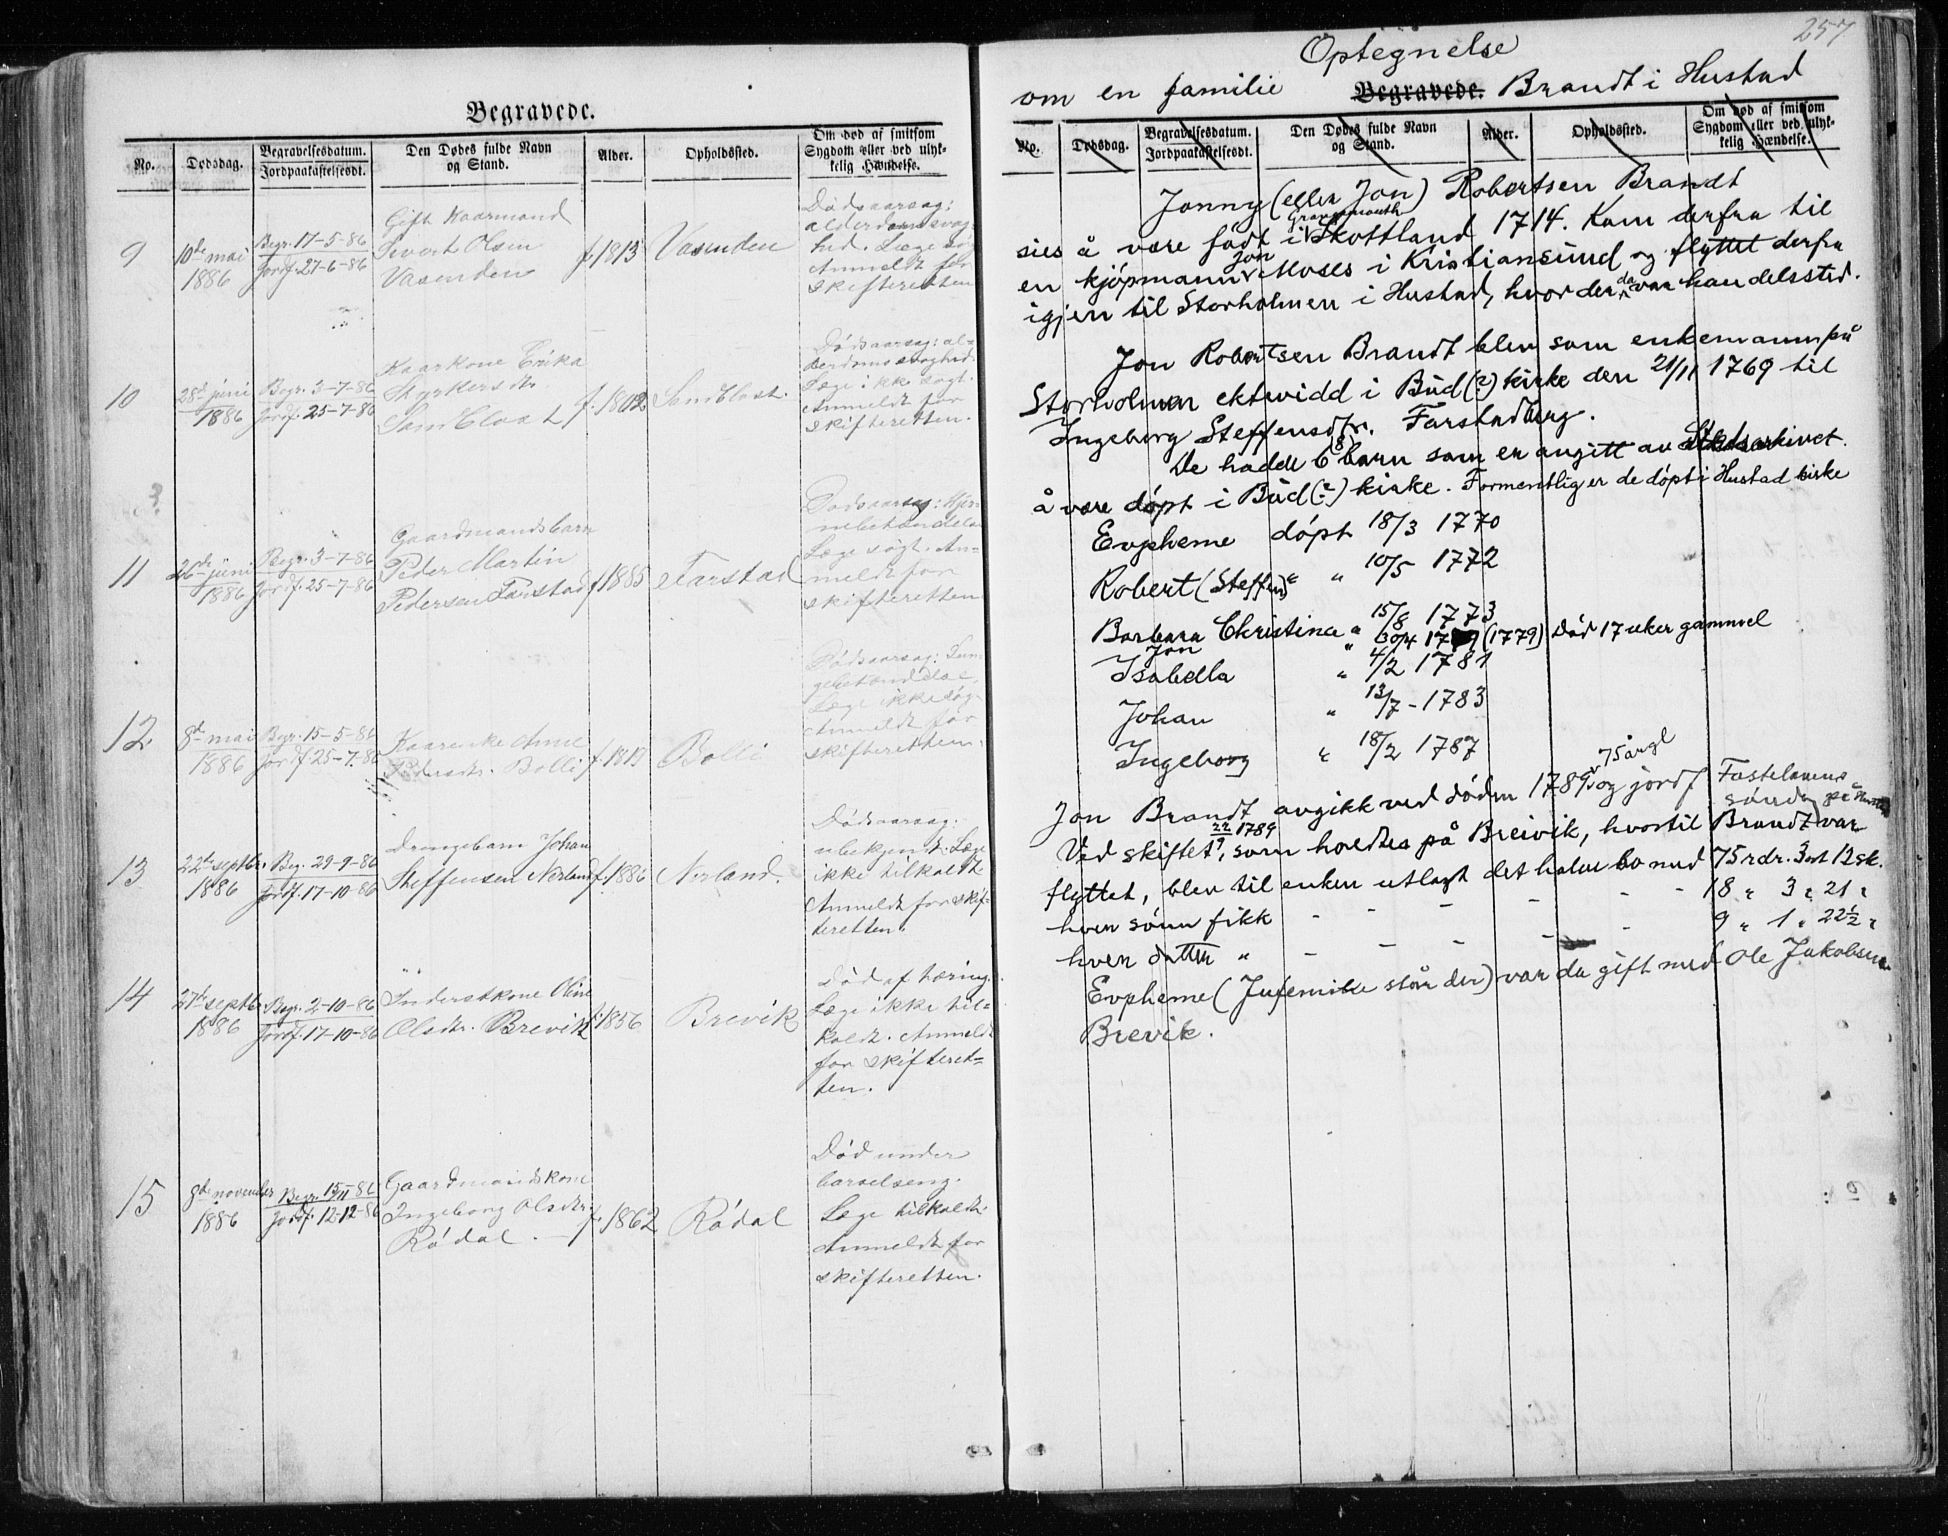 Begravede.
No.
Dødsdag.
Begravelsesdatum.
Jordpaakastelsesdt.
Den Dødes fulde Navn
og Stand.
Alder.
Opholdssted.
Om død af smitsom
Sygdom eller ved ulyk-
kelig Hændelse.
9
10de mai
1886
Begr. 17-5-86
Jordf. 27-6-86
Gift Kaarmand
Sivert Olsen
Vasenden
f. 1813
Vasenden
Dødsaarsag:
alderdomssvag-
hed. Læge
Anmeldt for
skifteretten
10
28de juni
1886
Begr. 3-7-86
Jordf. 25-7-86
Kaarkone Erika
f. 1802
Dødsaarsag: al-
derdomssvaghed.
Læge ikke søgt.
Anmeldt for
skifteretten.
11
26de juni
1886
Begr. 3-7-86
Jordf. 25-7-86
Gaardmandsbarn
Peder Martin
Pedersen Farstad
f. 1885
Farstad
Dødsaarsag:
Læge søgt. An-
meldt for
skifteretten.
12
8de mai
1886
Begr. 15-5-86
Jordf. 25-7-86
Kaarenke Anne
Pedersdtr. Bolli
Bolli
Dødsaarsag: Lun-
gebetændelse.
Læge ikke søgt.
Anmeldt for
skifteretten.
13
22de septbr.
1886
Beg. 29-9-86
Jordf. 17-10-86
Drengebarn Johan
Steffensen Nerland
f. 1886
Nerland.
Dødsaarsag:
ubekjendt. Læge
ikke tilkaldt
Anmeldt for skif-
teretten.
14
27de septbr
1886
Begr. 2-10-86
Jordf. 17-10-86
Inderstkone Oline
Olsdtr. Brevik
f. 1856
Brevik
Død af tæring.
Læge ikke til-
kaldt. Anmeldt
for skifteret-
ten.
15
8de november
1886
Begr. 15/11-86
Jordf. 12-12-86
Gaardmandskone
Ingeborg Olsdtr.
Rødal.
f. 1862
Rødal
Død under
barselseng.
Læge tilkaldt.
Anmeldt for
skifteretten.
257
Optegnelse
om en familie Begravede. Brandt i Hustad
No.
Dødsdag.
Begravelsesdatum.
Jordpaakastelsesdt.
Den Dødes fulde Navn
og Stand.
Alder.
Opholdssted.
Om død af smitsom
Sygdom eller ved ulyk-
kelig Hændelse.
Jonny (eller Jon) Robertsen Brandt
Grangemouth
sies å være født i Skottland 1714. Kom derfra til
en kjøpmann Jon Moses i Kristiansund og flyttet derfra
igjen til Storholmen i Hustad, hvor der da var handelssted.
Jon Robertsen Brandt blev som enkemann på
Storholmen ektevidd i Bud (?) kirke den 21/11 1769 til
Ingeborg Steffensdtr. Farstadberg.
De hadde 6 (8) barn som er angitt av Statsarkivet
å være døpt i Bud (?) kirke. Formentlig er de døpt i Hustad kirke
Evpheme døpt 18/3 1770
Robert (Steffen) " 10/5 1772
Barbara Christina " 15/8 1773
Jon " 30/4 17 9 (1779) Død 17 uker gammel
Isabella " 4/2 1781
Johan " 13/7 - 1783
Ingeborg " 18/2 1787
Jon Brandt avgikk ved døden 1789, 75 år gl og jordf Fastelavens
søndag på
Ved skiftet 22/7 1789, som holdtes på Breivik, hvortil Brandt var
flyttet, blev til enken utlagt det halve bo med 75 rdr. 3 ort 12 sk.
hver sønn fikk - - - - - - 18 " 3 " 21 "
hver datter " - - - - - 9 " 1 " 22½ "
Evpheme (Jufemille står der) var da gift med Ole Jakobsen
Brevik.